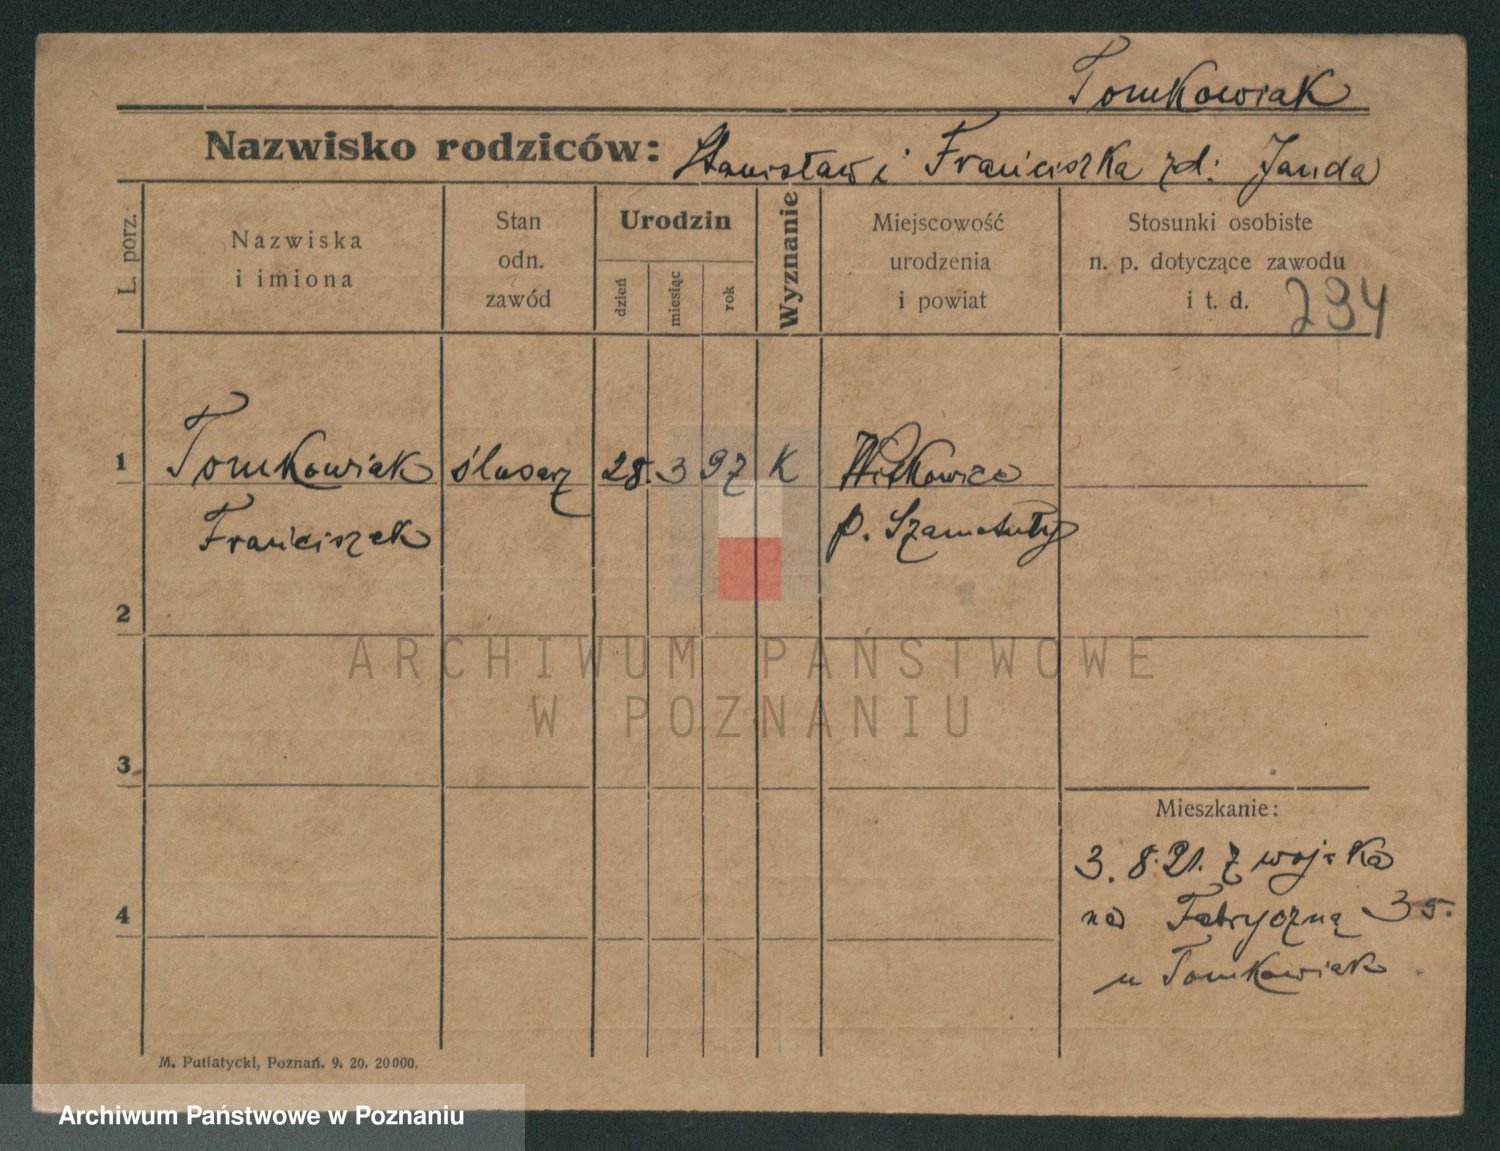 Tomkowiak
Nazwisko rodziców: Stanisław i Franciszka zd: Janda
L. porz.
Nazwiska
i imiona
Stan
odn.
zawód
Urodzin
dzień
miesiąc
rok
Wyznanie
Miejscowość
urodzenia
i powiat
Stosunki osobiste
n. p. dotyczące zawodu
i t. d.
234
1 Tomkowiak ślusarz 28. 3 97 K Witkowice
Franciszek p. Szamotuły
2
ARCHIWUM PAŃSTWOWE
W POZNANIU
3
Mieszkanie:
3. 8. 21. z wojska
na Fabryczną 35.
u Tomkowiak
4
M. Putiatycki, Poznań. 9. 20. 20000.
Archiwum Państwowe w Poznaniu